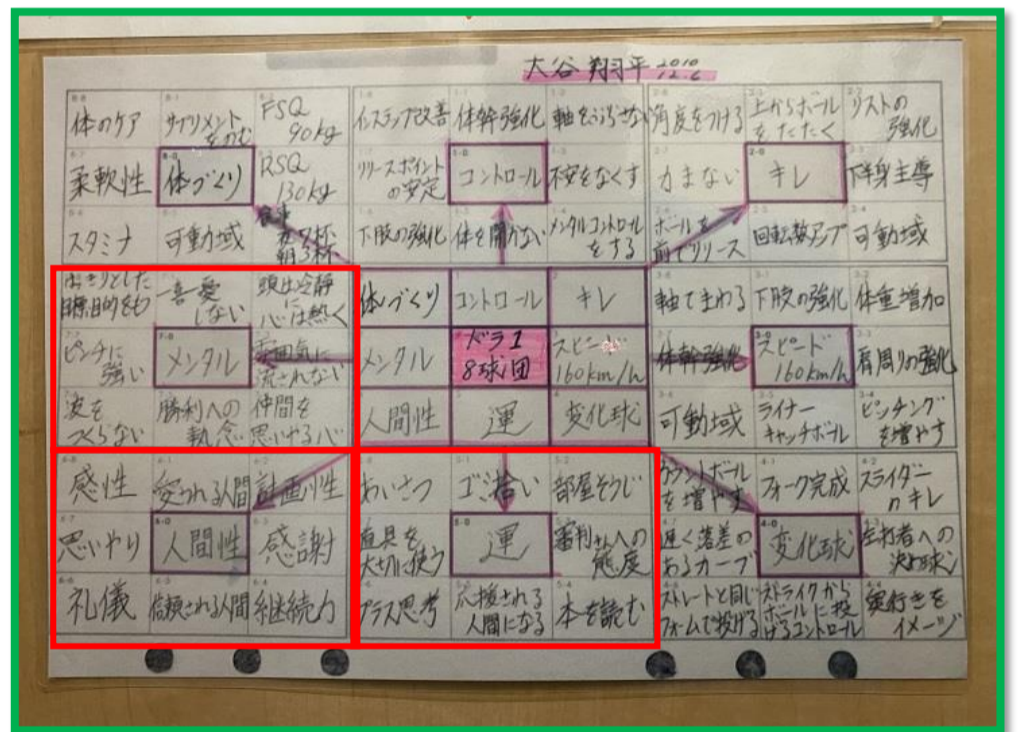 大谷翔平 2010 12.6
体のケア サプリメントをのむ FSQ 90kg インステップ改善 体幹強化 軸をぶらさない 角度をつける 上からボールをたたく リストの強化
柔軟性 体づくり RSQ 130kg リリースポイントの安定 コントロール 不安をなくす 力まない キレ 下半身主導
スタミナ 可動域 夜7杯 朝3杯 下肢の強化 体を開かない メンタルコントロールをする ボールを前でリリース 回転数アップ 可動域
はっきりとした目標、目的をもつ 一喜一憂しない 頭は冷静に心は熱く 体づくり コントロール キレ 軸でまわる 下肢の強化 体重増加
ピンチに強い メンタル 雰囲気に流されない メンタル ドラ1 8球団 スピード 160km/h 体幹強化 スピード 160km/h 肩周りの強化
波をつくらない 勝利への執念 仲間を思いやる心 人間性 運 変化球 可動域 ライナーキャッチボール ピッチングを増やす
感性 愛される人間 計画性 あいさつ ゴミ拾い 部屋そうじ カウントボールを増やす フォーク完成 スライダーのキレ
思いやり 人間性 感謝 道具を大切に使う 運 審判さんへの態度 遅く落差のあるカーブ 変化球 左打者への決め球
礼儀 信頼される人間 継続力 プラス思考 応援される人間になる 本を読む ストレートと同じフォームで投げる ストライクからボールに投げるコントロール 奥行きをイメージ